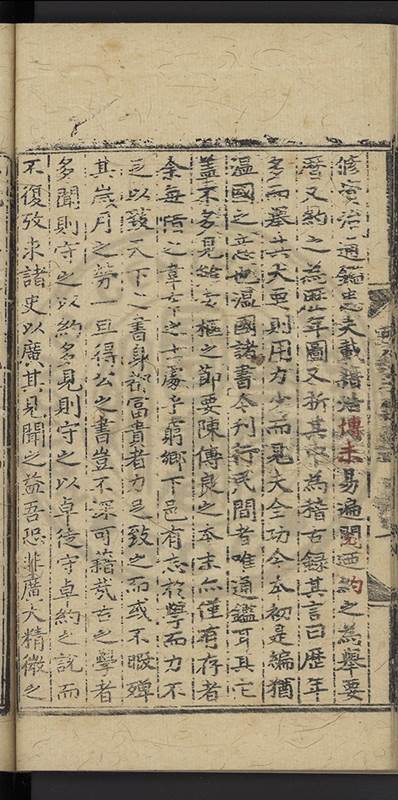 修資治通鑑患夫載籍浩博未易遍閱迺約之為舉要
曆又約之為歷年圖又析其中為稽古錄其言曰歷年
多而舉其大要則用力少而見夫全功今本初是編猶
溫國之志也溫國諸書今刊行民間者唯通鑑耳其它
蓋不多見雖安樞之節要陳傳良之本末亦僅有存者
余每病之韋布之士處乎窮鄉下邑有志於學而力不
足以致天下之書身都富貴者力足致之而或不暇殫
其歲月之勞一旦得公之書豈不深可藉哉古之學者
多聞則守之以約多見則守之以卓徒守卓約之說而
不復攷求諸史以廣其見聞之益吾恐非廣大精微之